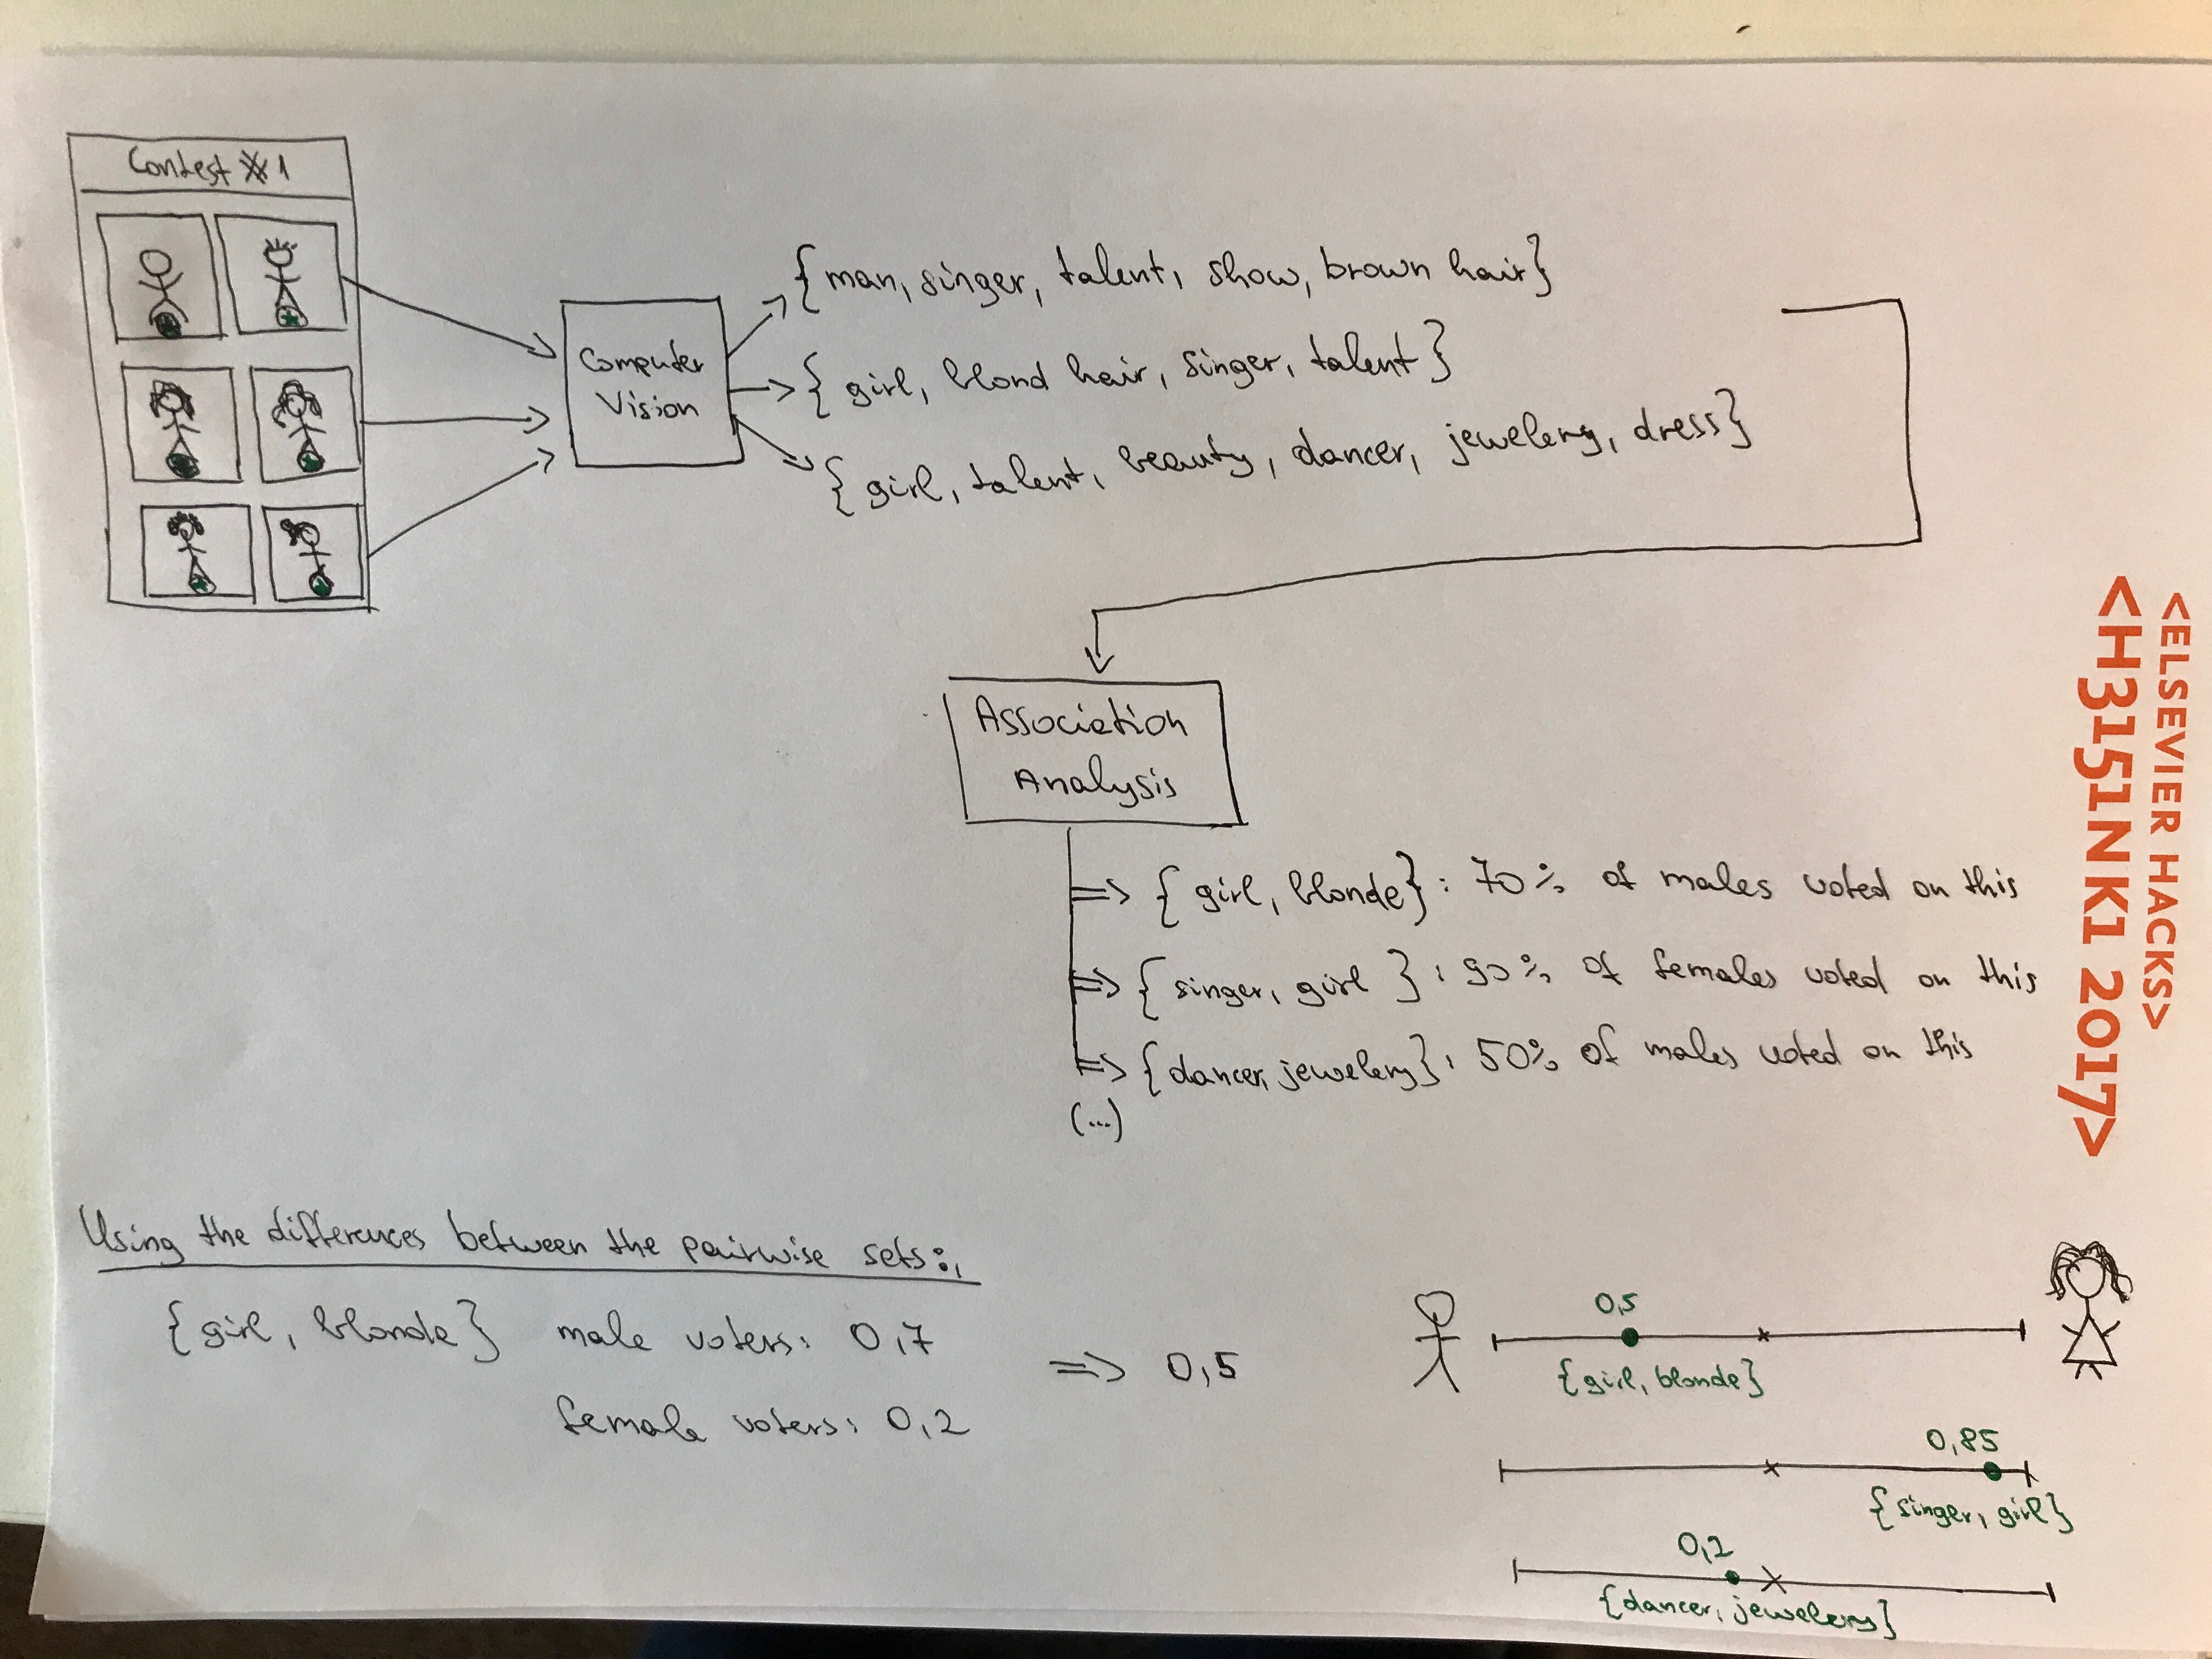 Contest #1
Computer
Vision
{man, singer, talent, show, brown hair}
{girl, blond hair, singer, talent}
{girl, talent, beauty, dancer, jewelery, dress}
Association
Analysis
=> {girl, blonde}: 70% of males voted on this
=> {singer, girl}: 90% of females voted on this
=> {dancer, jewelery}: 50% of males voted on this
(...)
<ELSEVIER HACKS>
<H3151NK1 2017>
Using the differences between the pairwise sets:
{girl, blonde} male voters: 0,7
female voters: 0,2
=> 0,5
0,5
{girl, blonde}
0,85
{singer, girl}
0,2
{dancer, jewelery}